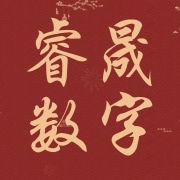 睿晟
数字